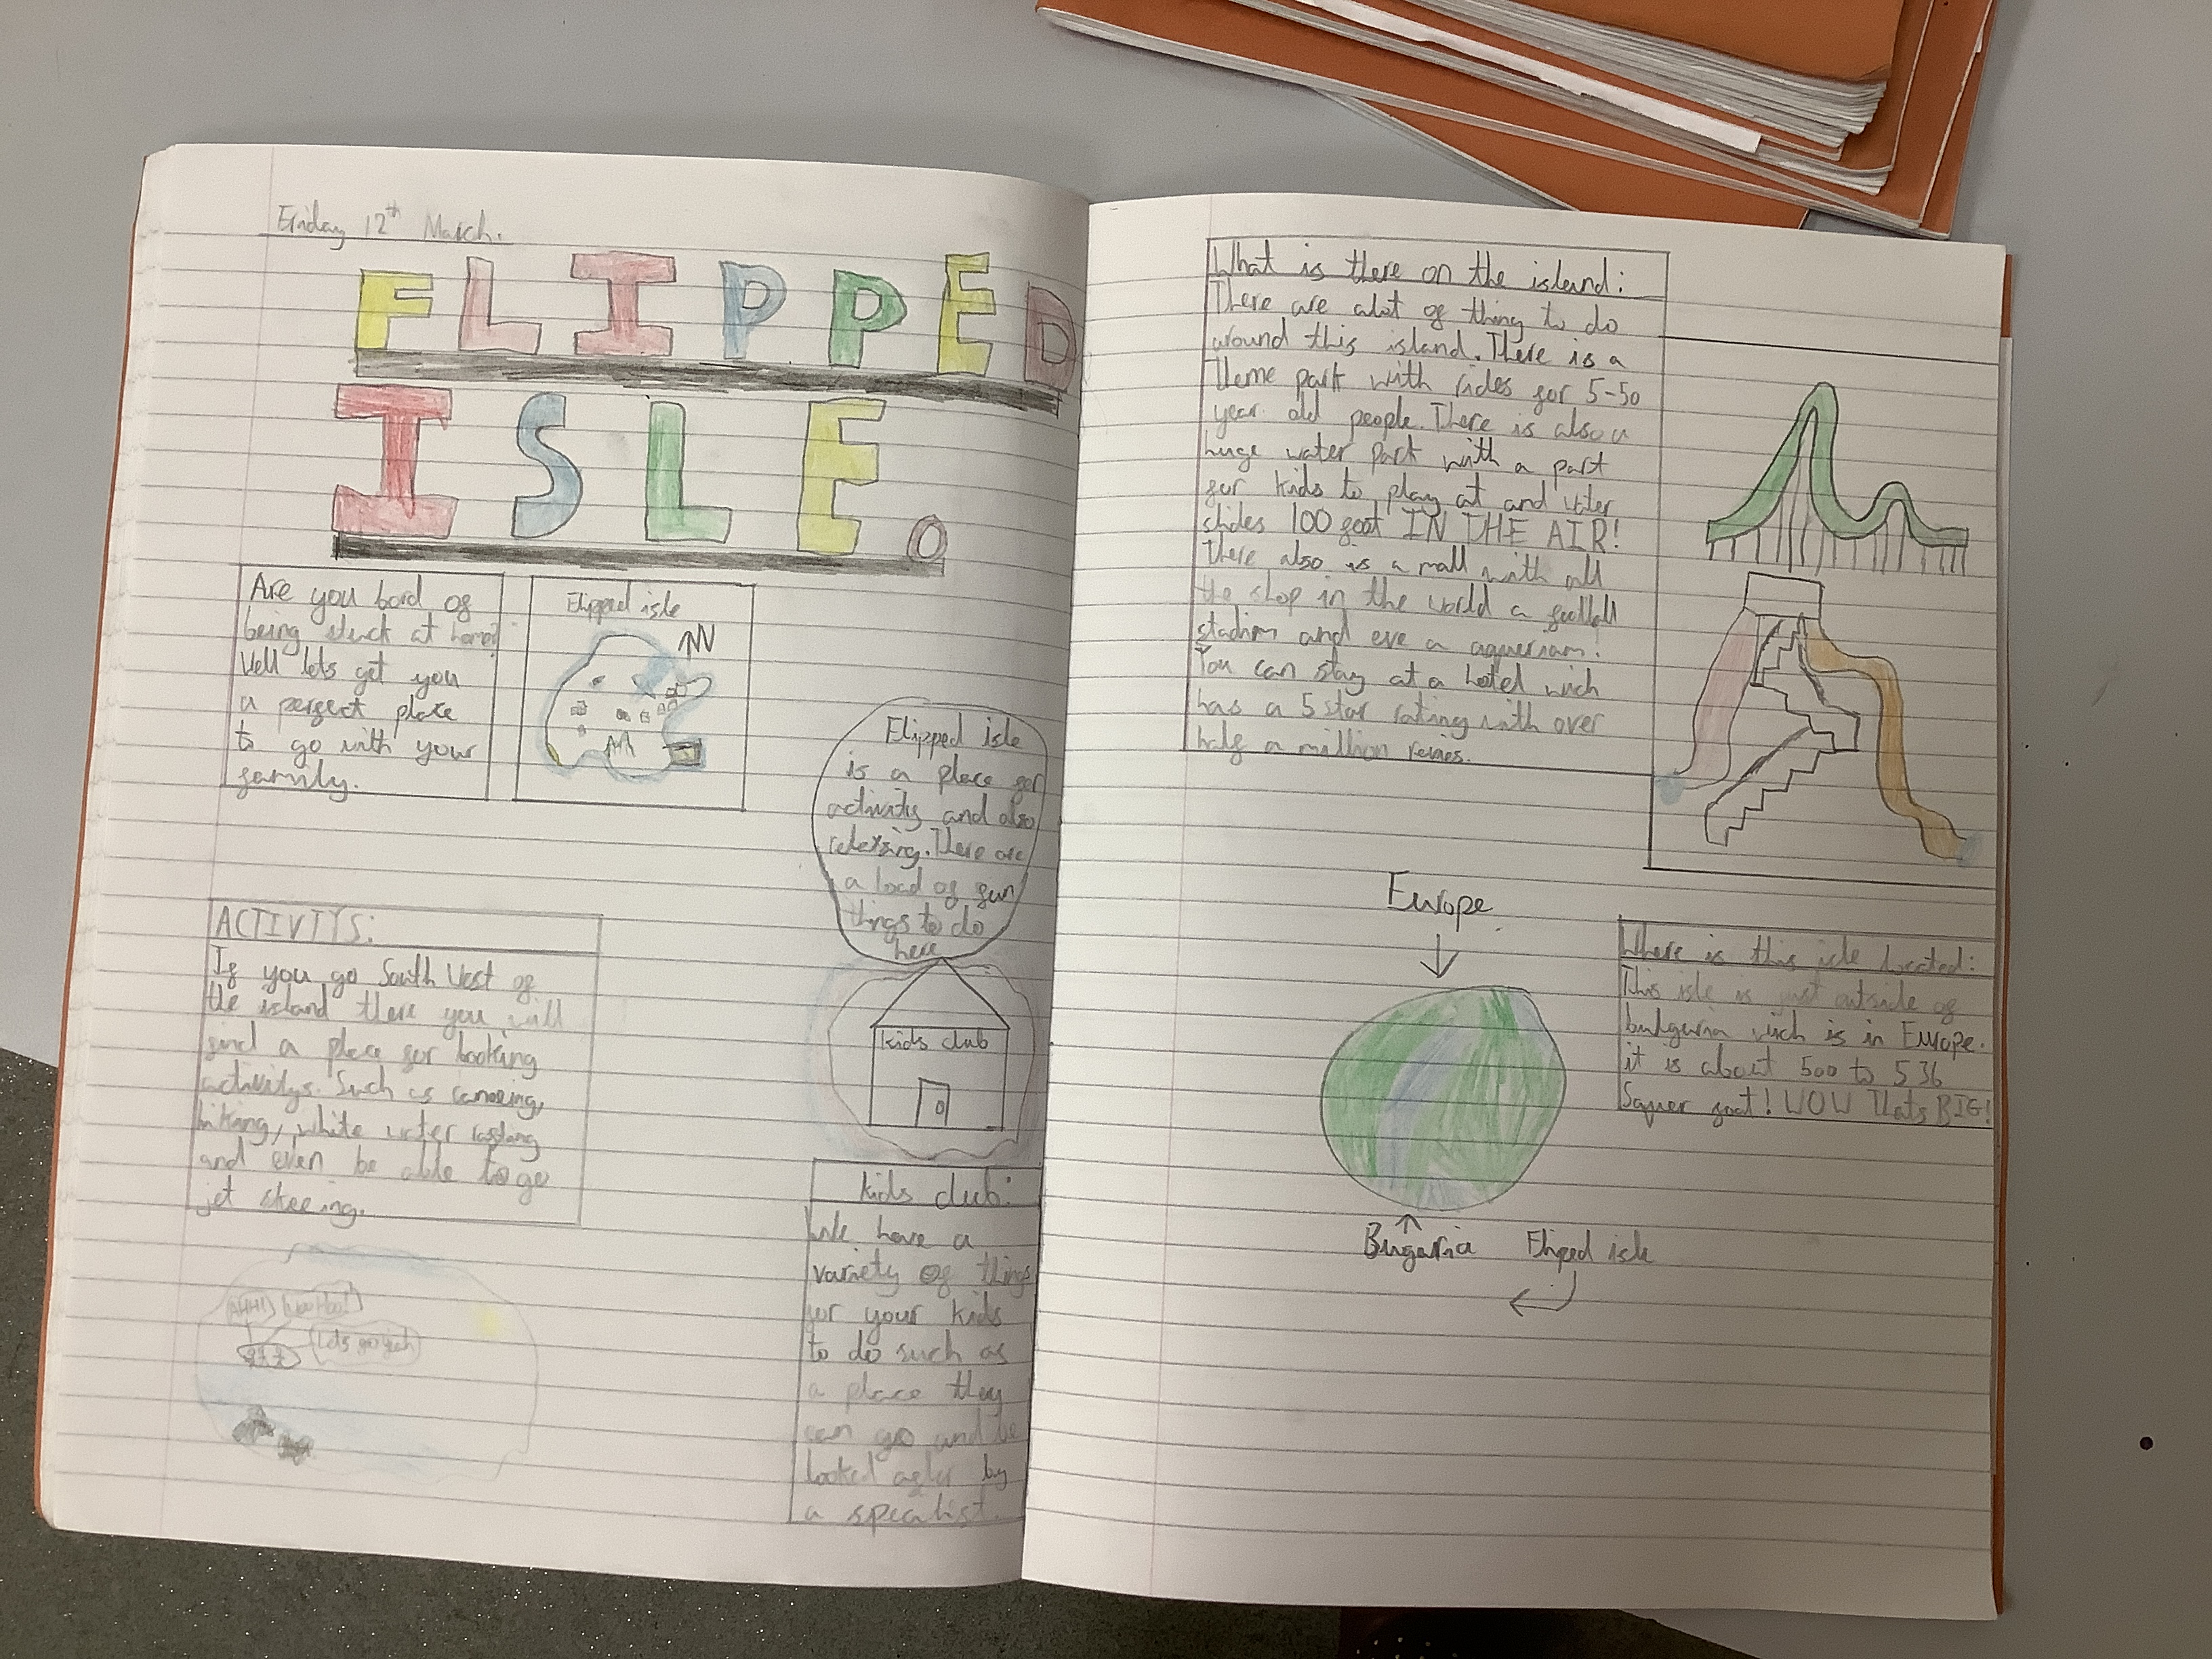 Friday 12th March.
FLIPPED
ISLE.
Are you bord of
being stuck at home?
Well lets get you
a perfect place
to go with your
family.
Flipped isle
Flipped isle
is a place for
activity and also
relexsing. There are
a load of fun
things to do
here
ACTIVITYS:
If you go South West of
the island there you will
find a place for booking
activitys. Such as canoeing,
hiking, white water
and even be able to go
jet skeeing.
AHH! WooHoo!
Lets go yeah
kids club
kids club:
We have a
variety of things
for your kids
to do such as
a place they
can go and be
looked after by
a specalist.
What is there on the island:
There are alot of thing to do
around this island. There is a
theme park with rides for 5-50
year old people. There is also a
huge water park with a part
for kids to play at and water
slides 100 foot IN THE AIR!
There also is a mall with all
the shop in the world a football
stadium and eve a aqueriam.
You can stay at a hotel wich
has a 5 star rating with over
half a million revies.
Europe
Where is this isle located:
This isle is just outside of
bulguria wich is in Europe.
it is about 500 to 536
Squer foot! WOW Thats BIG!
Bugaria Fliped isle